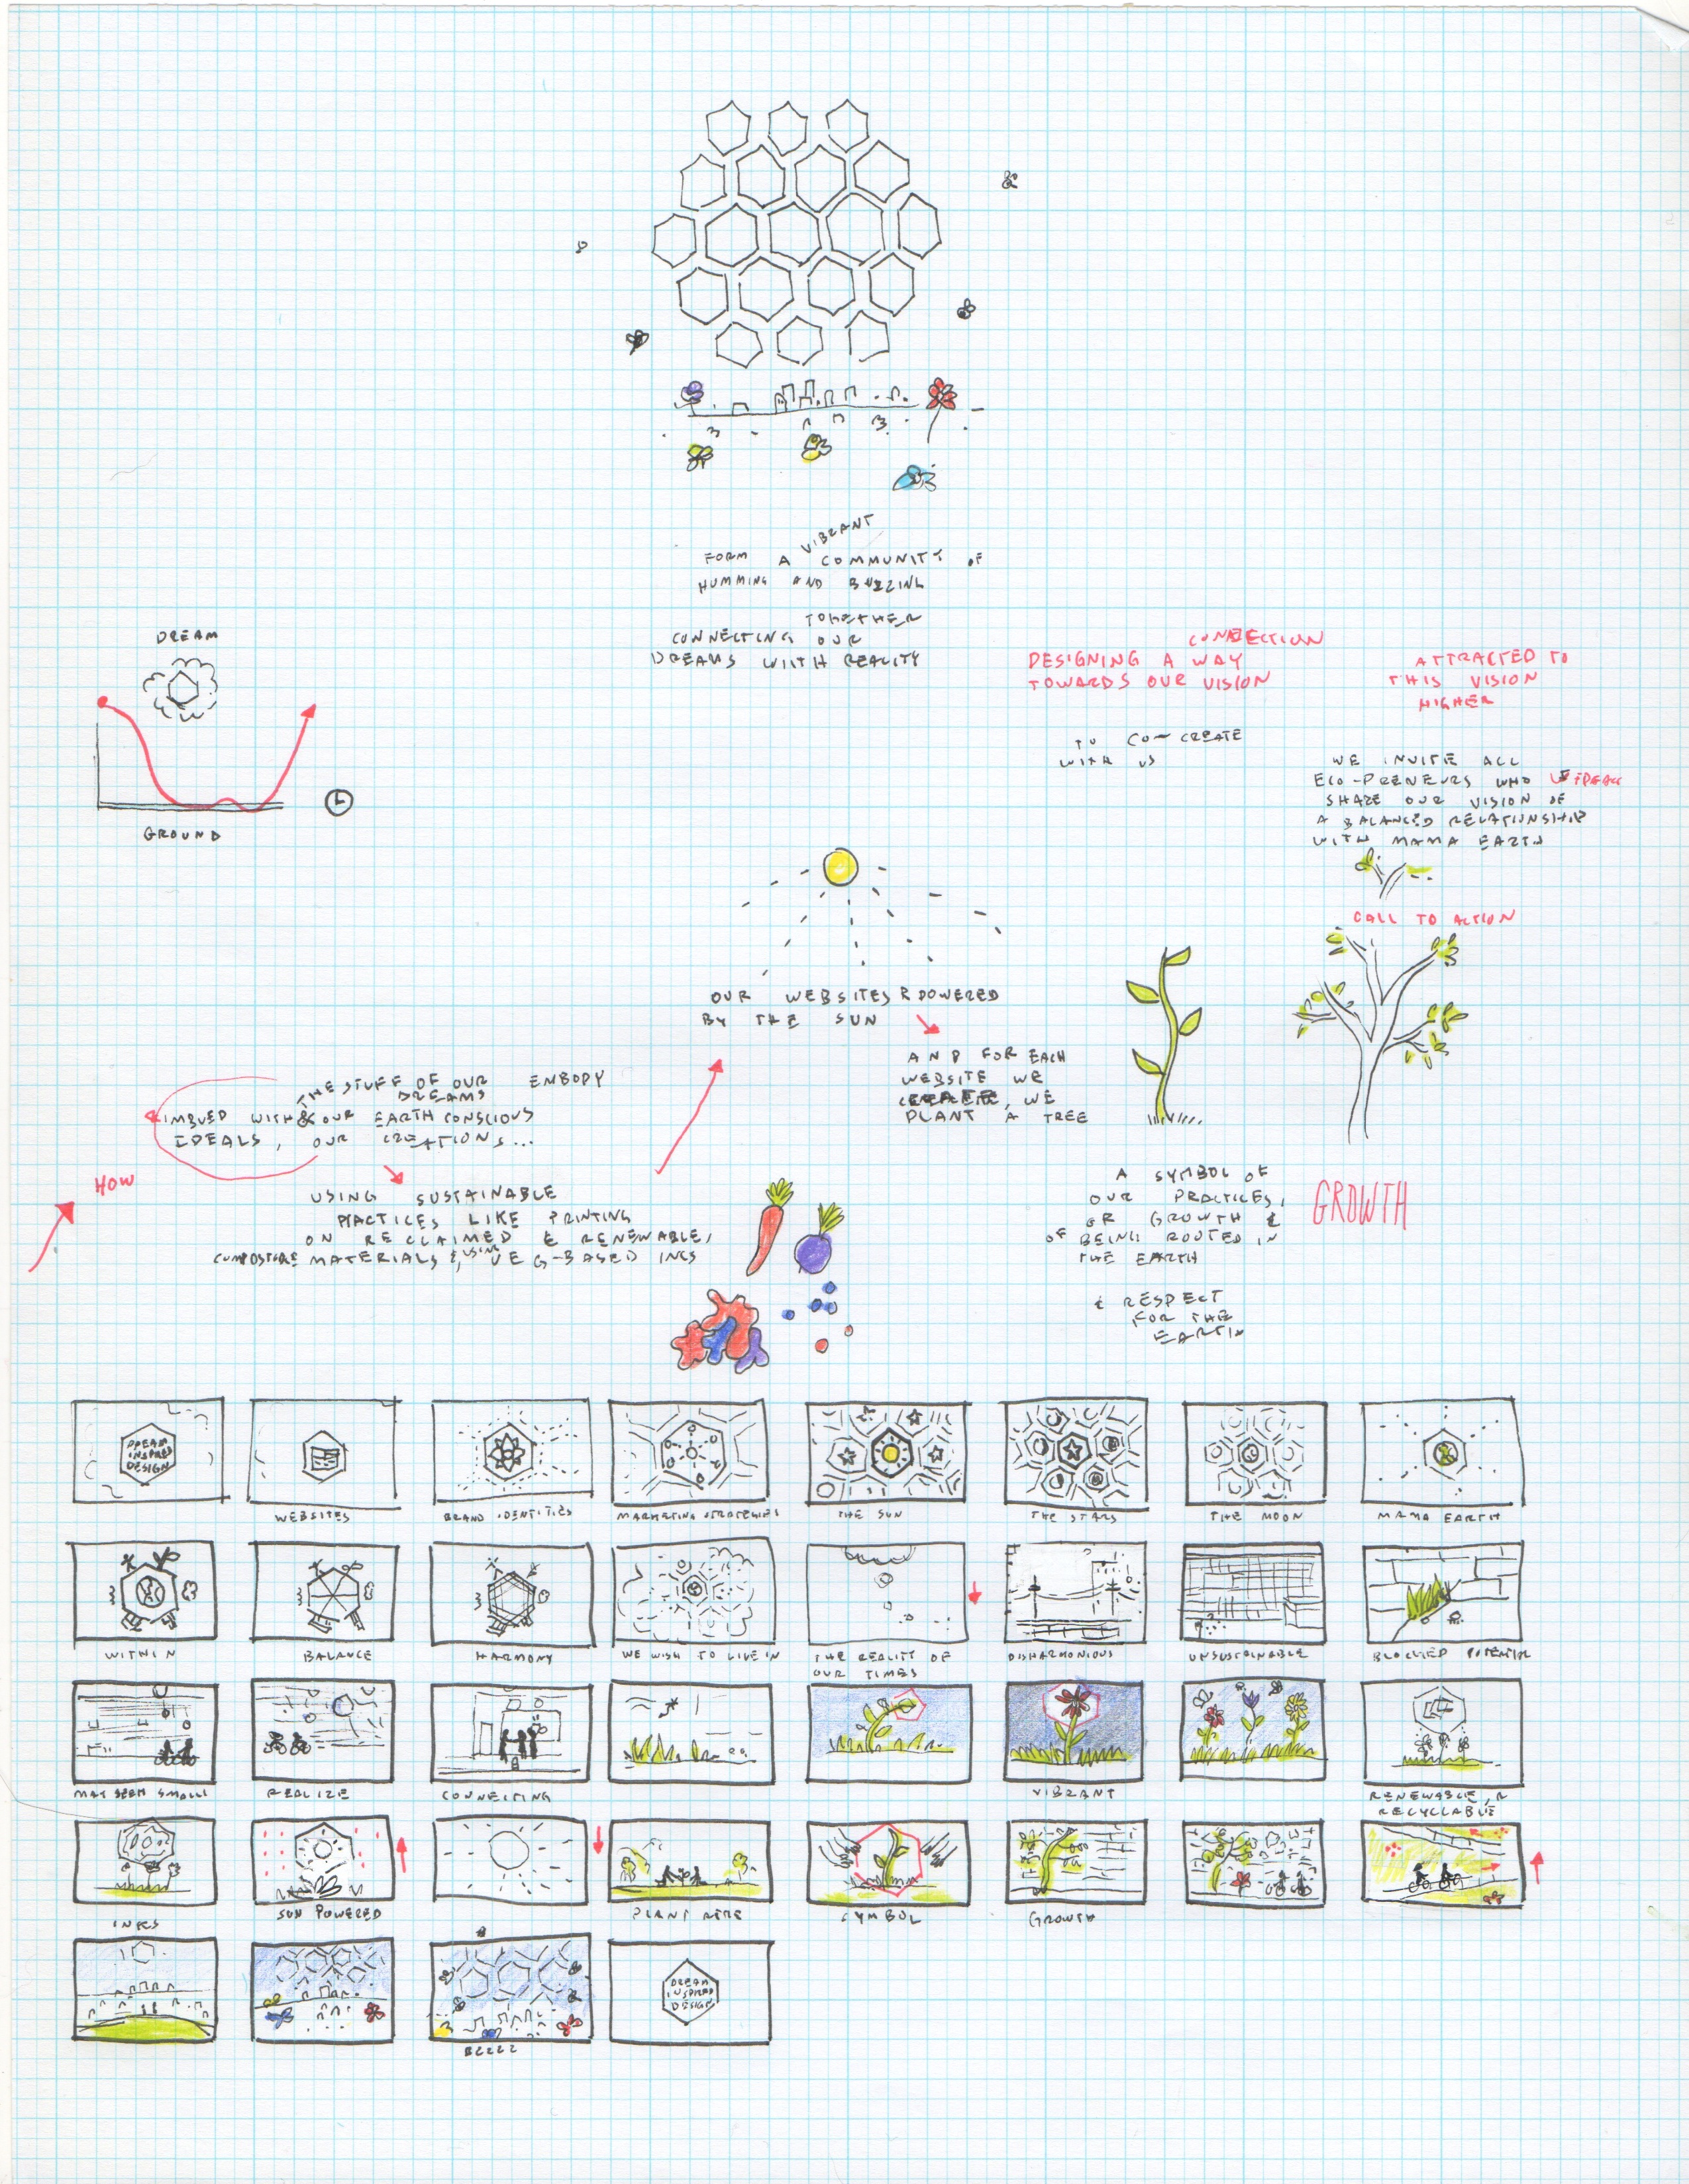 VIBRANT
FORM A COMMUNITY OF
HUMMING AND BUZZING
TOGETHER
CONNECTING OUR
DREAMS WITH REALITY
DREAM
GROUND
CONNECTION
DESIGNING A WAY
TOWARDS OUR VISION
ATTRACTED TO
THIS VISION
HIGHER
TO CO-CREATE
WITH US
WE INVITE ALL
ECO-PRENEURS WHO
SHARE OUR VISION OF
A BALANCED RELATIONSHIP
WITH MAMA EARTH
CALL TO ACTION
OUR WEBSITES R POWERED
BY THE SUN
AND FOR EACH
WEBSITE WE
CREATE, WE
PLANT A TREE
THE STUFF OF OUR EMBODY
DREAMS
IMBUED WITH & OUR EARTH CONSCIOUS
IDEALS, OUR CREATIONS...
HOW
USING SUSTAINABLE
PRACTICES LIKE PRINTING
ON RECLAIMED & RENEWABLE,
MATERIALS &, USING VEG-BASED INKS
A SYMBOL OF
OUR PRACTICES,
OF GROWTH &
OF BEING ROOTED IN
THE EARTH
GROWTH
& RESPECT
FOR THE
EARTH
DREAM
INSPIRED
DESIGN
WEBSITES
BRAND IDENTITIES
MARKETING STRATEGIES
THE SUN
THE STARS
THE MOON
MAMA EARTH
WITHIN
BALANCE
HARMONY
WE WISH TO LIVE IN
THE REALITY OF
OUR TIMES
DISHARMONIOUS
UNSUSTAINABLE
BLOCKED POTENTIAL
MAY SEEM SMALL
REALIZE
CONNECTING
VIBRANT
RENEWABLE, R
RECYCLABLE
INKS
SUN POWERED
PLANT
SYMBOL
GROWTH
BZZZZ
DREAM
INSPIRED
DESIGN